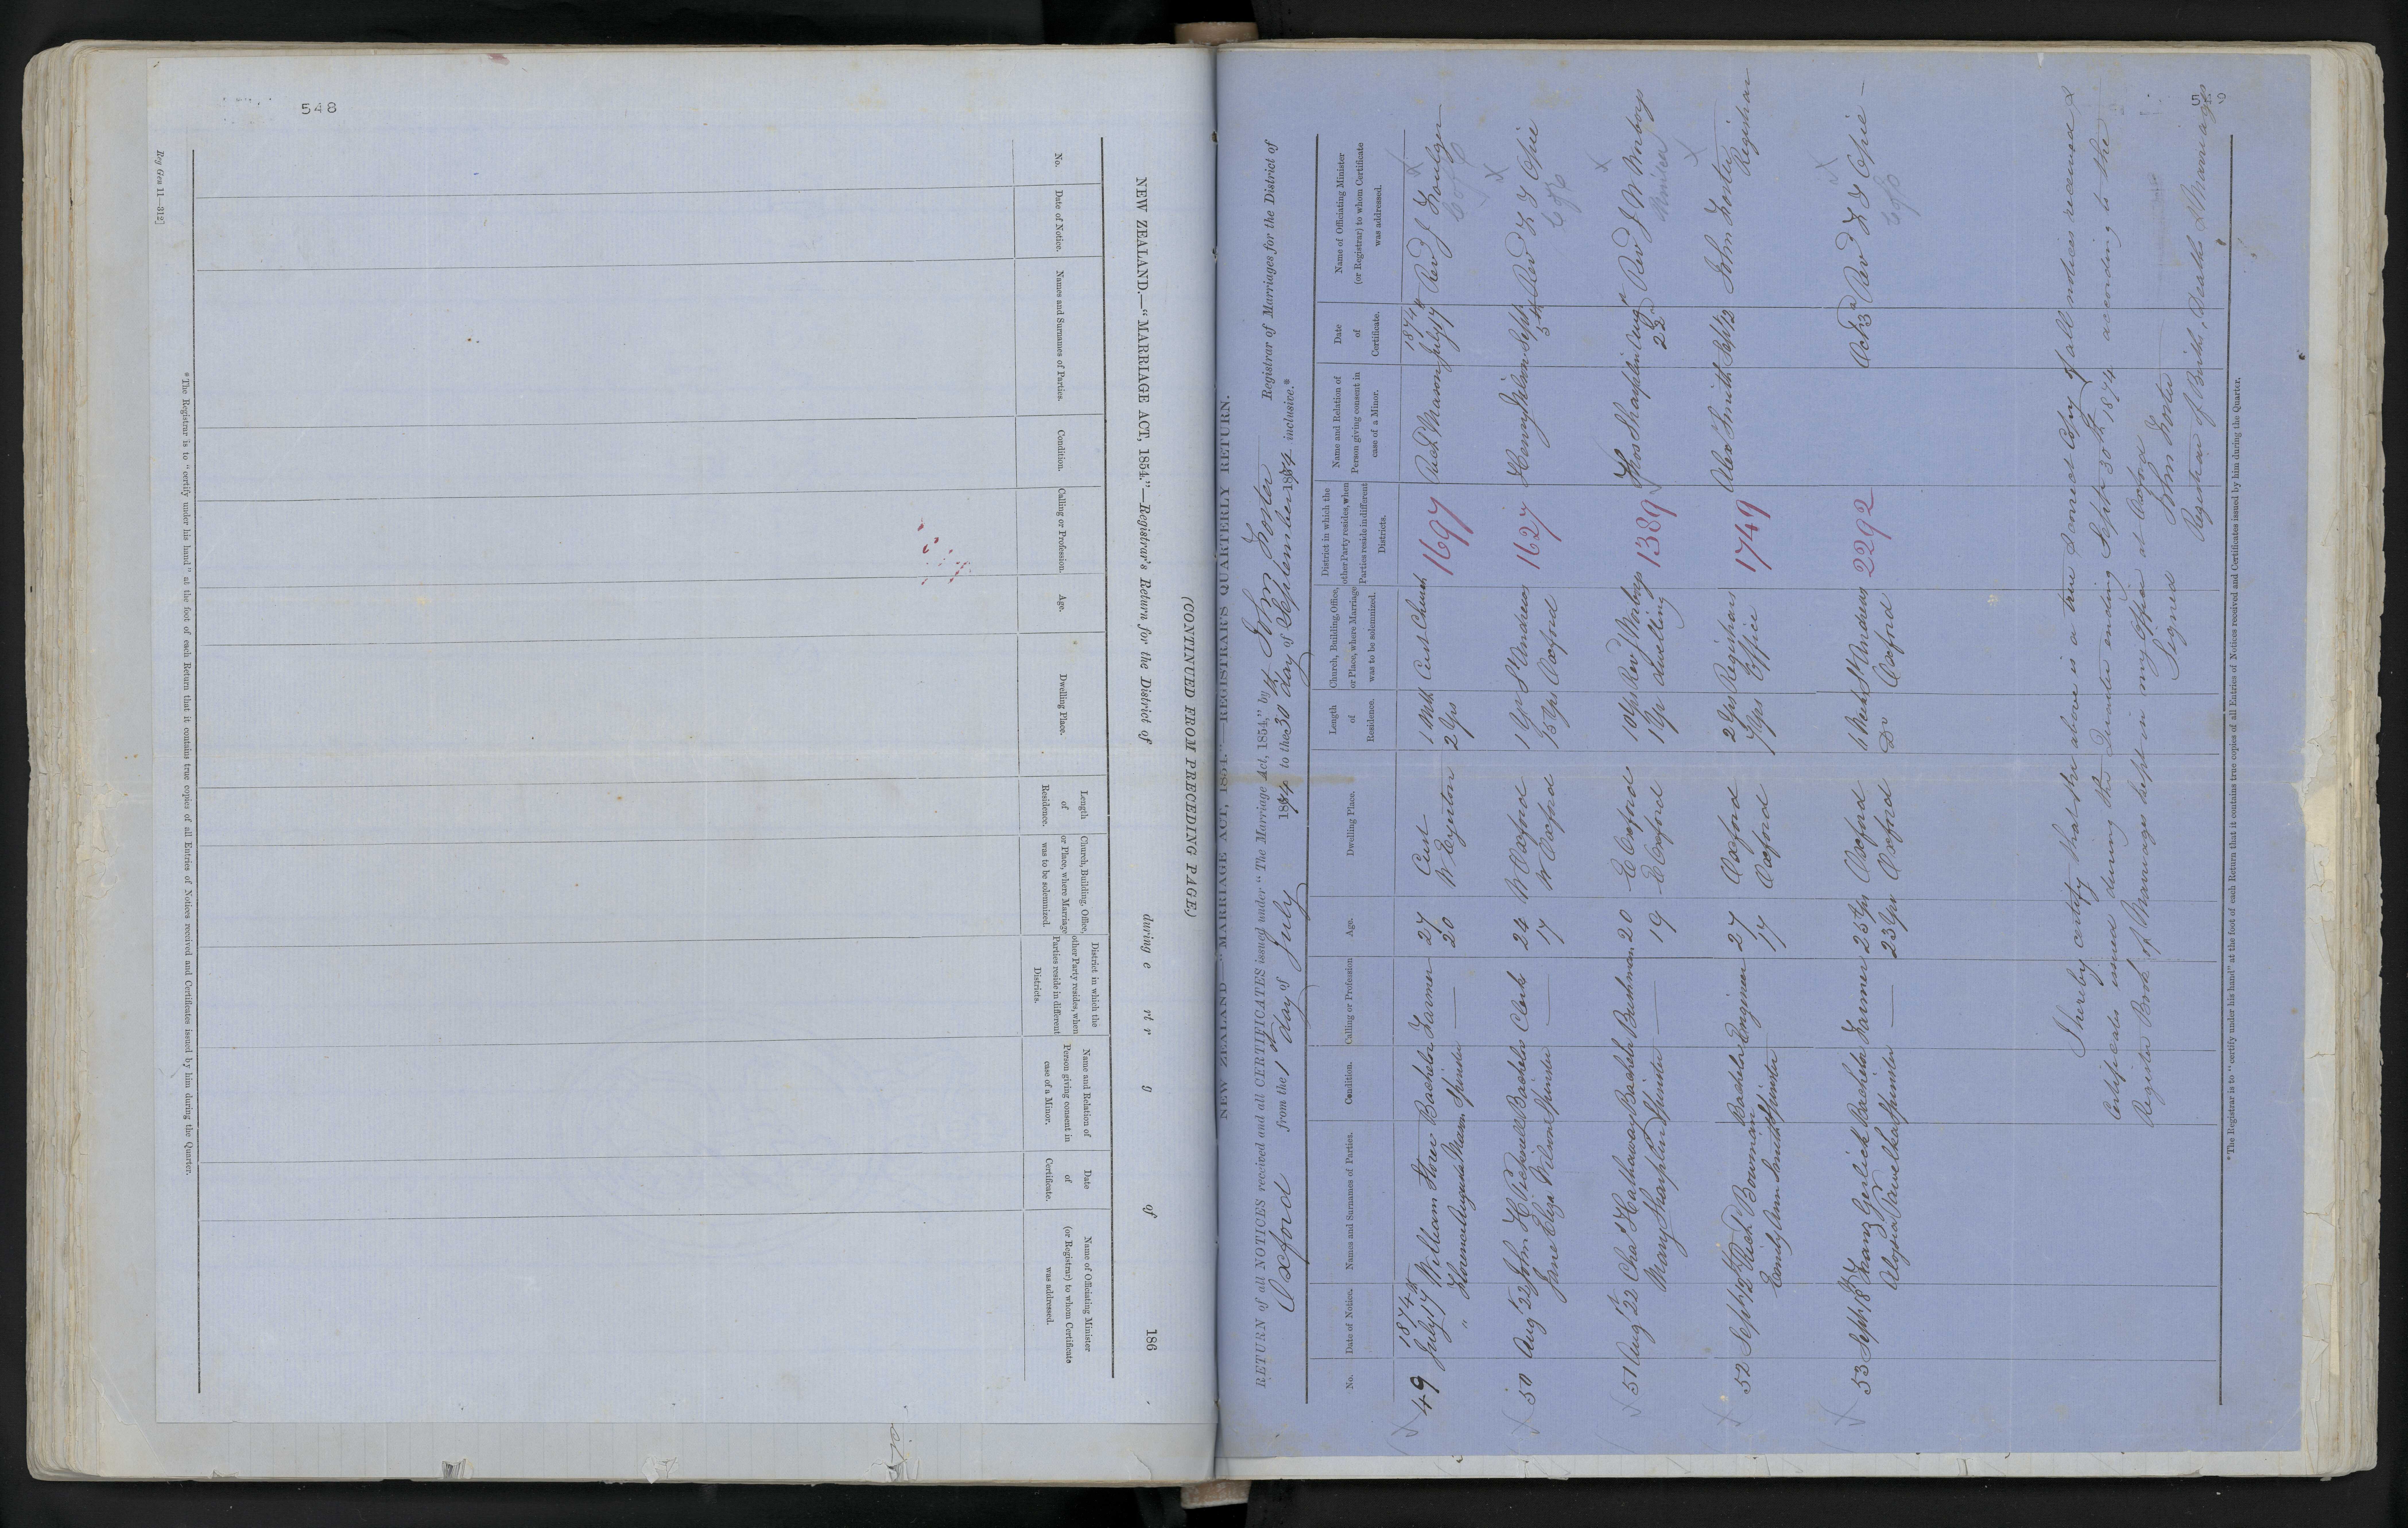 548
NEW ZEALAND.—"MARRIAGE ACT, 1854."—Registrar's Return for the District of during e rt r of 186
(CONTINUED FROM PRECEDING PAGE.)
No. Date of Notice. Names and Surnames of Parties. Condition. Calling or Profession. Age. Dwelling Place. Length of Residence. Church, Building, Office, or Place, where Marriage was to be solemnized. District in which the other Party resides, when Parties reside in different Districts. Name and Relation of Person giving consent in case of a Minor. Date of Certificate. Name of Officiating Minister (or Registrar) to whom Certificate was addressed.
* The Registrar is to "certify under his hand" at the foot of each Return that it contains true copies of all Entries of Notices received and Certificates issued by him during the Quarter.
Reg Gen 11—312]
NEW ZEALAND—"MARRIAGE ACT, 1854."—REGISTRAR'S QUARTERLY RETURN.
RETURN of all NOTICES received and all CERTIFICATES issued under "The Marriage Act, 1854," by John Foster Registrar of Marriages for the District of
Oxford from the 1st day of July 1874 to the 30th day of September 1874 inclusive.*
No. Date of Notice. Names and Surnames of Parties. Condition. Calling or Profession Age. Dwelling Place. Length of Residence. Church, Building, Office, or Place, where Marriage was to be solemnized. District in which the other Party resides, when Parties reside in different Districts. Name and Relation of Person giving consent in case of a Minor. Date of Certificate. Name of Officiating Minister (or Registrar) to whom Certificate was addressed.
1874 1874
49 July 17th William Bachelor Farmer 27 Cust 1 Mth Cust Church 1697 Richd Mason July 17th Revd J Foulger
" Florence Augusta Mason Spinster — 20 W Eyreton 2 Yrs CofE
50 Augt 22 John H Bachelor Clerk 24 W Oxford 1 Yr St Andrews 1627 Henry Wilson Sept 5th Revd Opie
Jane Eliza Wilson Spinster — 17 W Oxford 15 Yrs Oxford CofE
51 Augt 22 Chas Hathaway Bachelor Bushman 20 E Oxford 10 Yrs Revd 1389 Thos Sharplin Augt 22d Revd J W
Mary Sharplin Spinster — 19 E Oxford 1 Yr dwelling
52 Sept 12th Richd Bowman Bachelor Engineer 27 Oxford 2 Yrs Registrars 1749 Alexr Smith Sept 12 John Foster Registrar
Emily Ann Smith Spinster 17 Oxford 7 Yrs Office
53 Sept 18th Franz Gerlick Bachelor Farmer 25 Yrs Oxford St Andrews 2292 Octr 3d Revd Opie —
Aloysia Pawelka Spinster — 23 Yrs Oxford Do Oxford CofE
I hereby certify that the above is a true & correct copy of all notices received &
Certificates issued during the Quarter ending Septr 30th 1874 according to the
Register Book of Marriages kept in my Office at Oxford
Signed John Foster
Registrar of Births, Deaths & Marriages
* The Registrar is to "certify under his hand" at the foot of each Return that it contains true copies of all Entries of Notices received and Certificates issued by him during the Quarter.